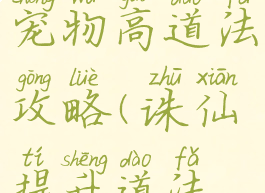 宠物高道法
gōng lüè zhū xiān
攻略(诛仙
tí shēng dào fǎ
提升道法